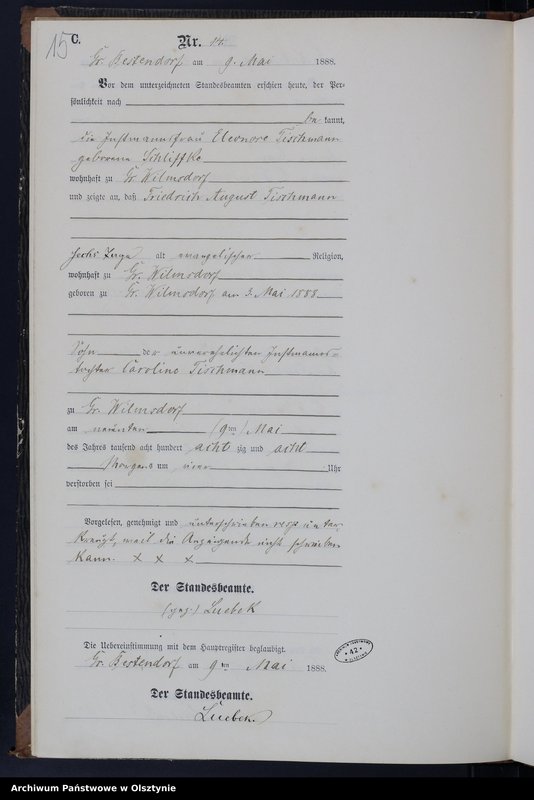 15
C.
Nr. 14.
Gr. Bestendorf am 9. Mai 1888.
Vor dem unterzeichneten Standesbeamten erschien heute, der Per-
sönlichkeit nach
be kannt,
die Instmannsfrau Eleonore Tischmann
geborene Schliffke
wohnhaft zu Gr. Wilmsdorf
und zeigte an, daß Friedrich August Tischmann
sechs Tage alt evangelischer Religion,
wohnhaft zu Gr. Wilmsdorf
geboren zu Gr. Wilmsdorf am 3. Mai 1888
Sohn der unverehelichten Instmanns-
tochter Caroline Tischmann
zu Gr. Wilmsdorf
am neunten (9ten) Mai
des Jahres tausend acht hundert acht zig und acht
Morgens um vier Uhr
verstorben sei
Vorgelesen, genehmigt und unterschrieben resp unter
kreuzt, weil die Anzeigende nicht schreiben
kann. x x x
Der Standesbeamte.
(gez.) Luebek
Die Uebereinstimmung mit dem Hauptregister beglaubigt.
Gr. Bestendorf am 9ten Mai 1888.
Der Standesbeamte.
Luebek
42
Archiwum Państwowe w Olsztynie